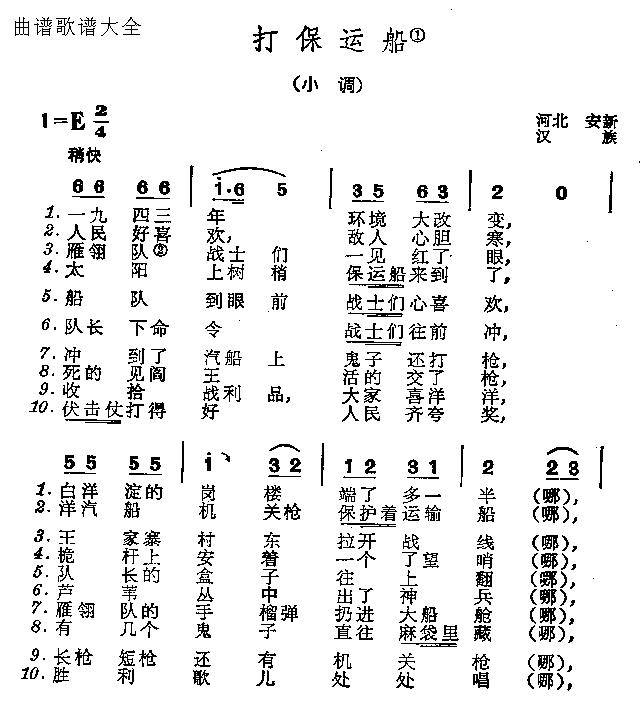 曲谱歌谱大全
打保运船①
（小 调）
1=E 2/4
河北 安新
汉 族
稍快
6 6 6 6 | i·6 5 | 3 5 6 3 | 2 0 |
1. 一九 四三 年 环境 大改 变,
2. 人民 好喜 欢, 敌人 心胆 寒,
3. 雁翎 队② 战士 们 一见 红了 眼,
4. 太 阳 上树 稍 保运船 来到 了,
5. 船 队 到眼 前 战士们 心喜 欢,
6. 队长 下命 令 战士们 往前 冲,
7. 冲 到了 汽船 上 鬼子 还打 枪,
8. 死的 见阎 王 活的 交了 枪,
9. 收 拾 战利 品, 大家 喜洋 洋,
10. 伏击仗 打得 好 人民 齐夸 奖,
5 5 5 5 | i 3 2 | 1 2 3 1 | 2 2 3 |
1. 白洋 淀的 岗 楼 端了 多一 半 (哪),
2. 洋汽 船 机 关枪 保护着 运输 船 (哪),
3. 王 家寨 村 东 拉开 战 线 (哪),
4. 桅 杆上 安 着 一个 了望 哨 (哪),
5. 队 长的 盒 子 往 上 翻 (哪),
6. 芦 苇 丛 中 出了 神 兵 (哪),
7. 雁翎 队的 手 榴弹 扔进 大船 舱 (哪),
8. 有 几个 鬼 子 直往 麻袋里 藏 (哪),
9. 长枪 短枪 还 有 机 关 枪 (哪),
10. 胜 利 歌 儿 处 处 唱 (哪),